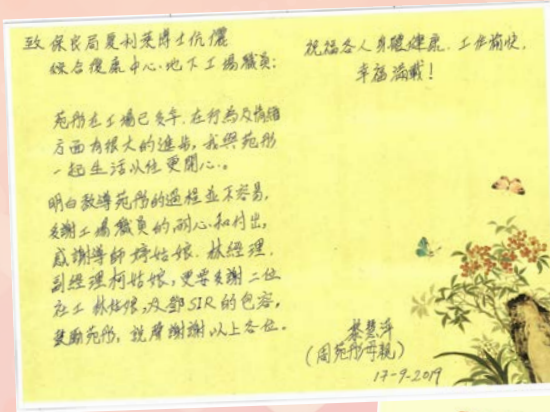 致 保良局夏利萊博士伉儷
綜合復康中心地下工場職員:
苑彤在工場已多年,在行為及情緒
方面有很大的進步,我與苑彤
一起生活以往更開心。
明白教導苑彤的過程並不容易,
多謝工場職員的耐心和付出,
感謝導師 姑娘,林經理,
副經理柯姑娘,更要多謝二位
社工 林姑娘,及鄧SIR的包容,
鼓勵苑彤,說聲謝謝以上各位。
祝福各人身體健康,工作愉快,
幸福滿載!
(周苑彤母親)
17-9-2019